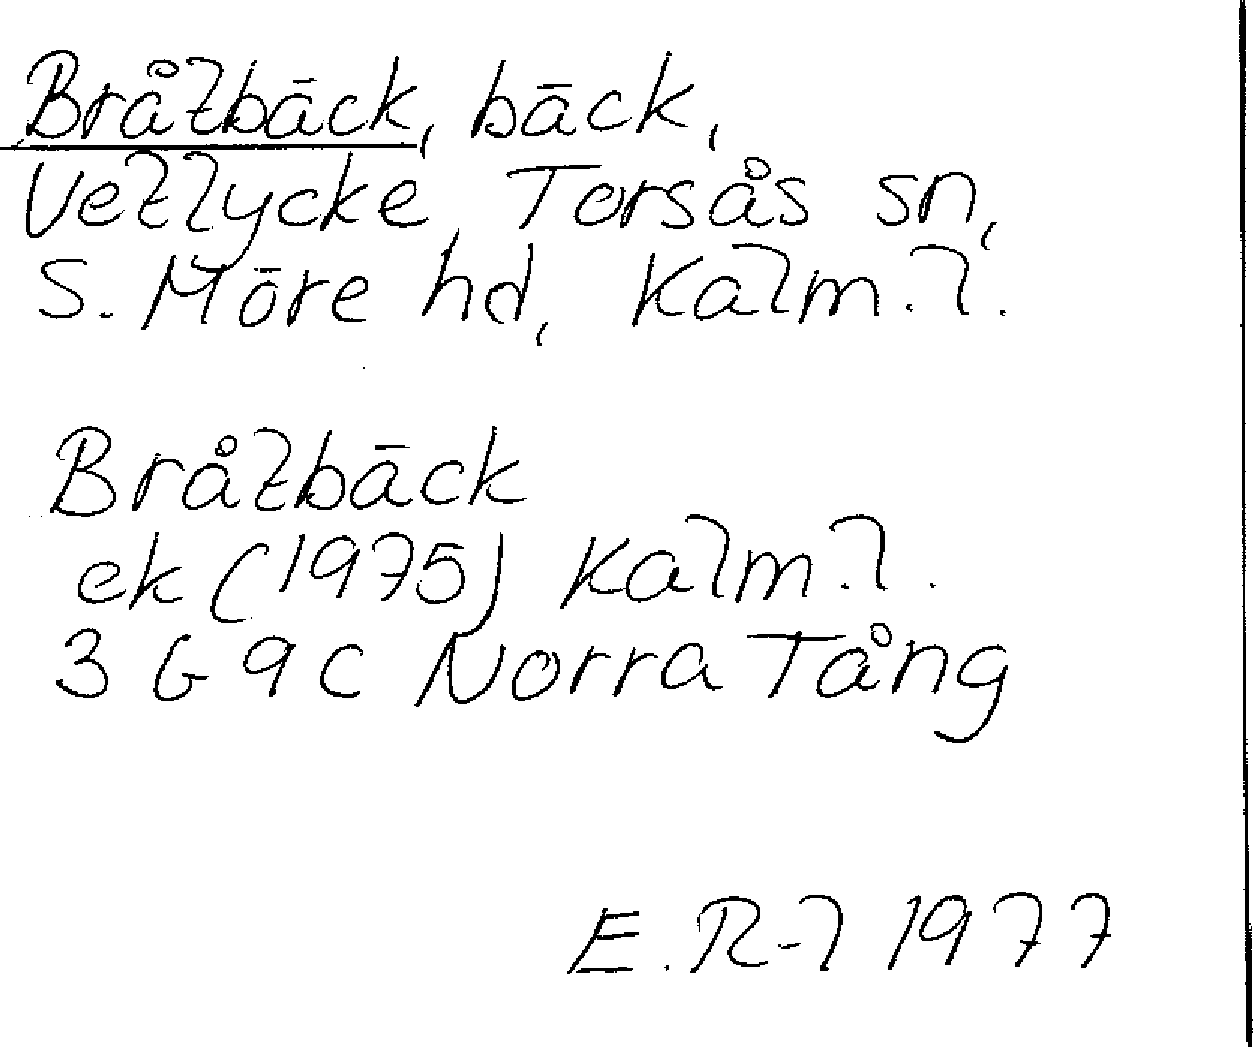 Bråtbäck, bäck,
Vetlycke, Torsås sn,
S. Möre hd, Kalm. l.
Bråtbäck
ek (1975) Kalm. l.
3 G 9 c Norra Tång
E. R-l 1977